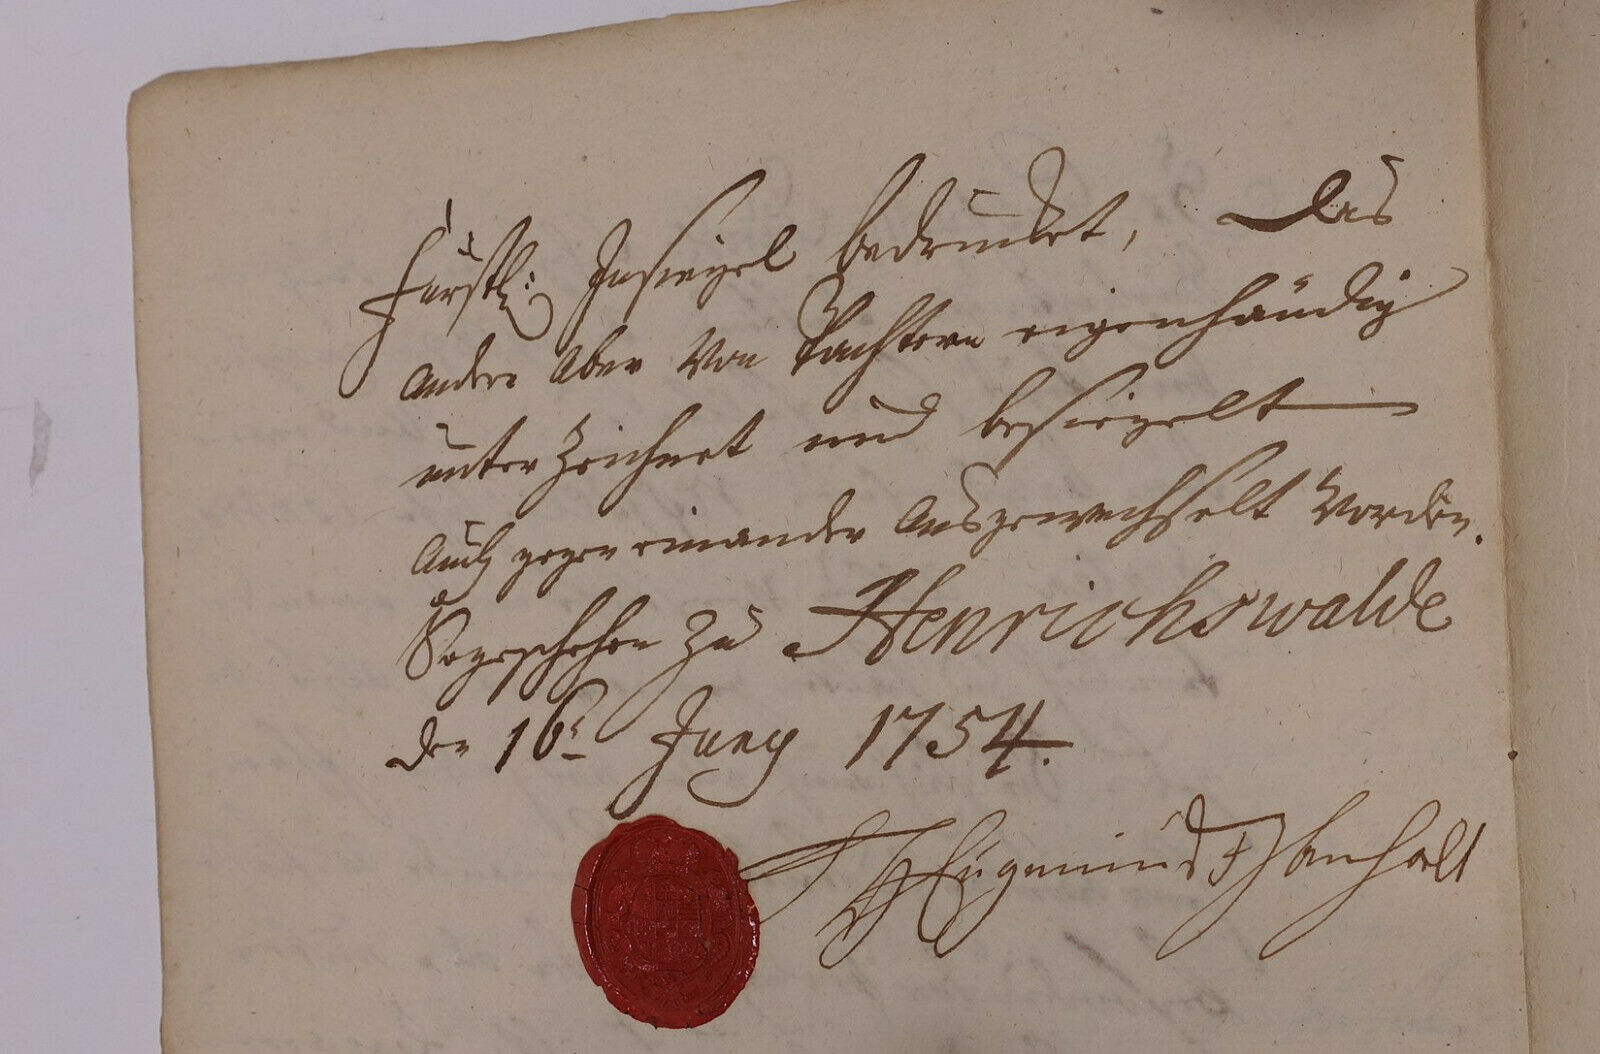 Fürstl: Insiegel bedrucket, das
andere aber von Pachtern eigenhändig
unterzeichnet und besiegelt
auch gegen einander ausgewechßelt worden.
So geschehen zu Henrichswalde
den 16t Juny 1754.
Anhalt